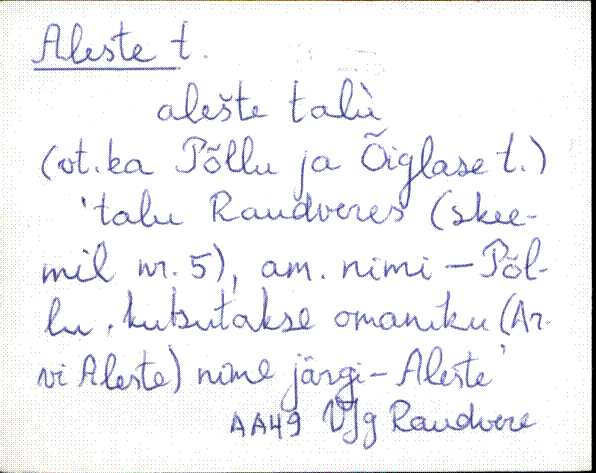 Aleste t.
alešte talù
(vt. ka Põllu ja Õiglase t.)
'talu Raudveres (skee-
mil nr. 5), am. nimi – Põl-
lu, kutsutakse omaniku (Ar-
vi Aleste) nime järgi – Aleste'
AA49 VJg Raudvere